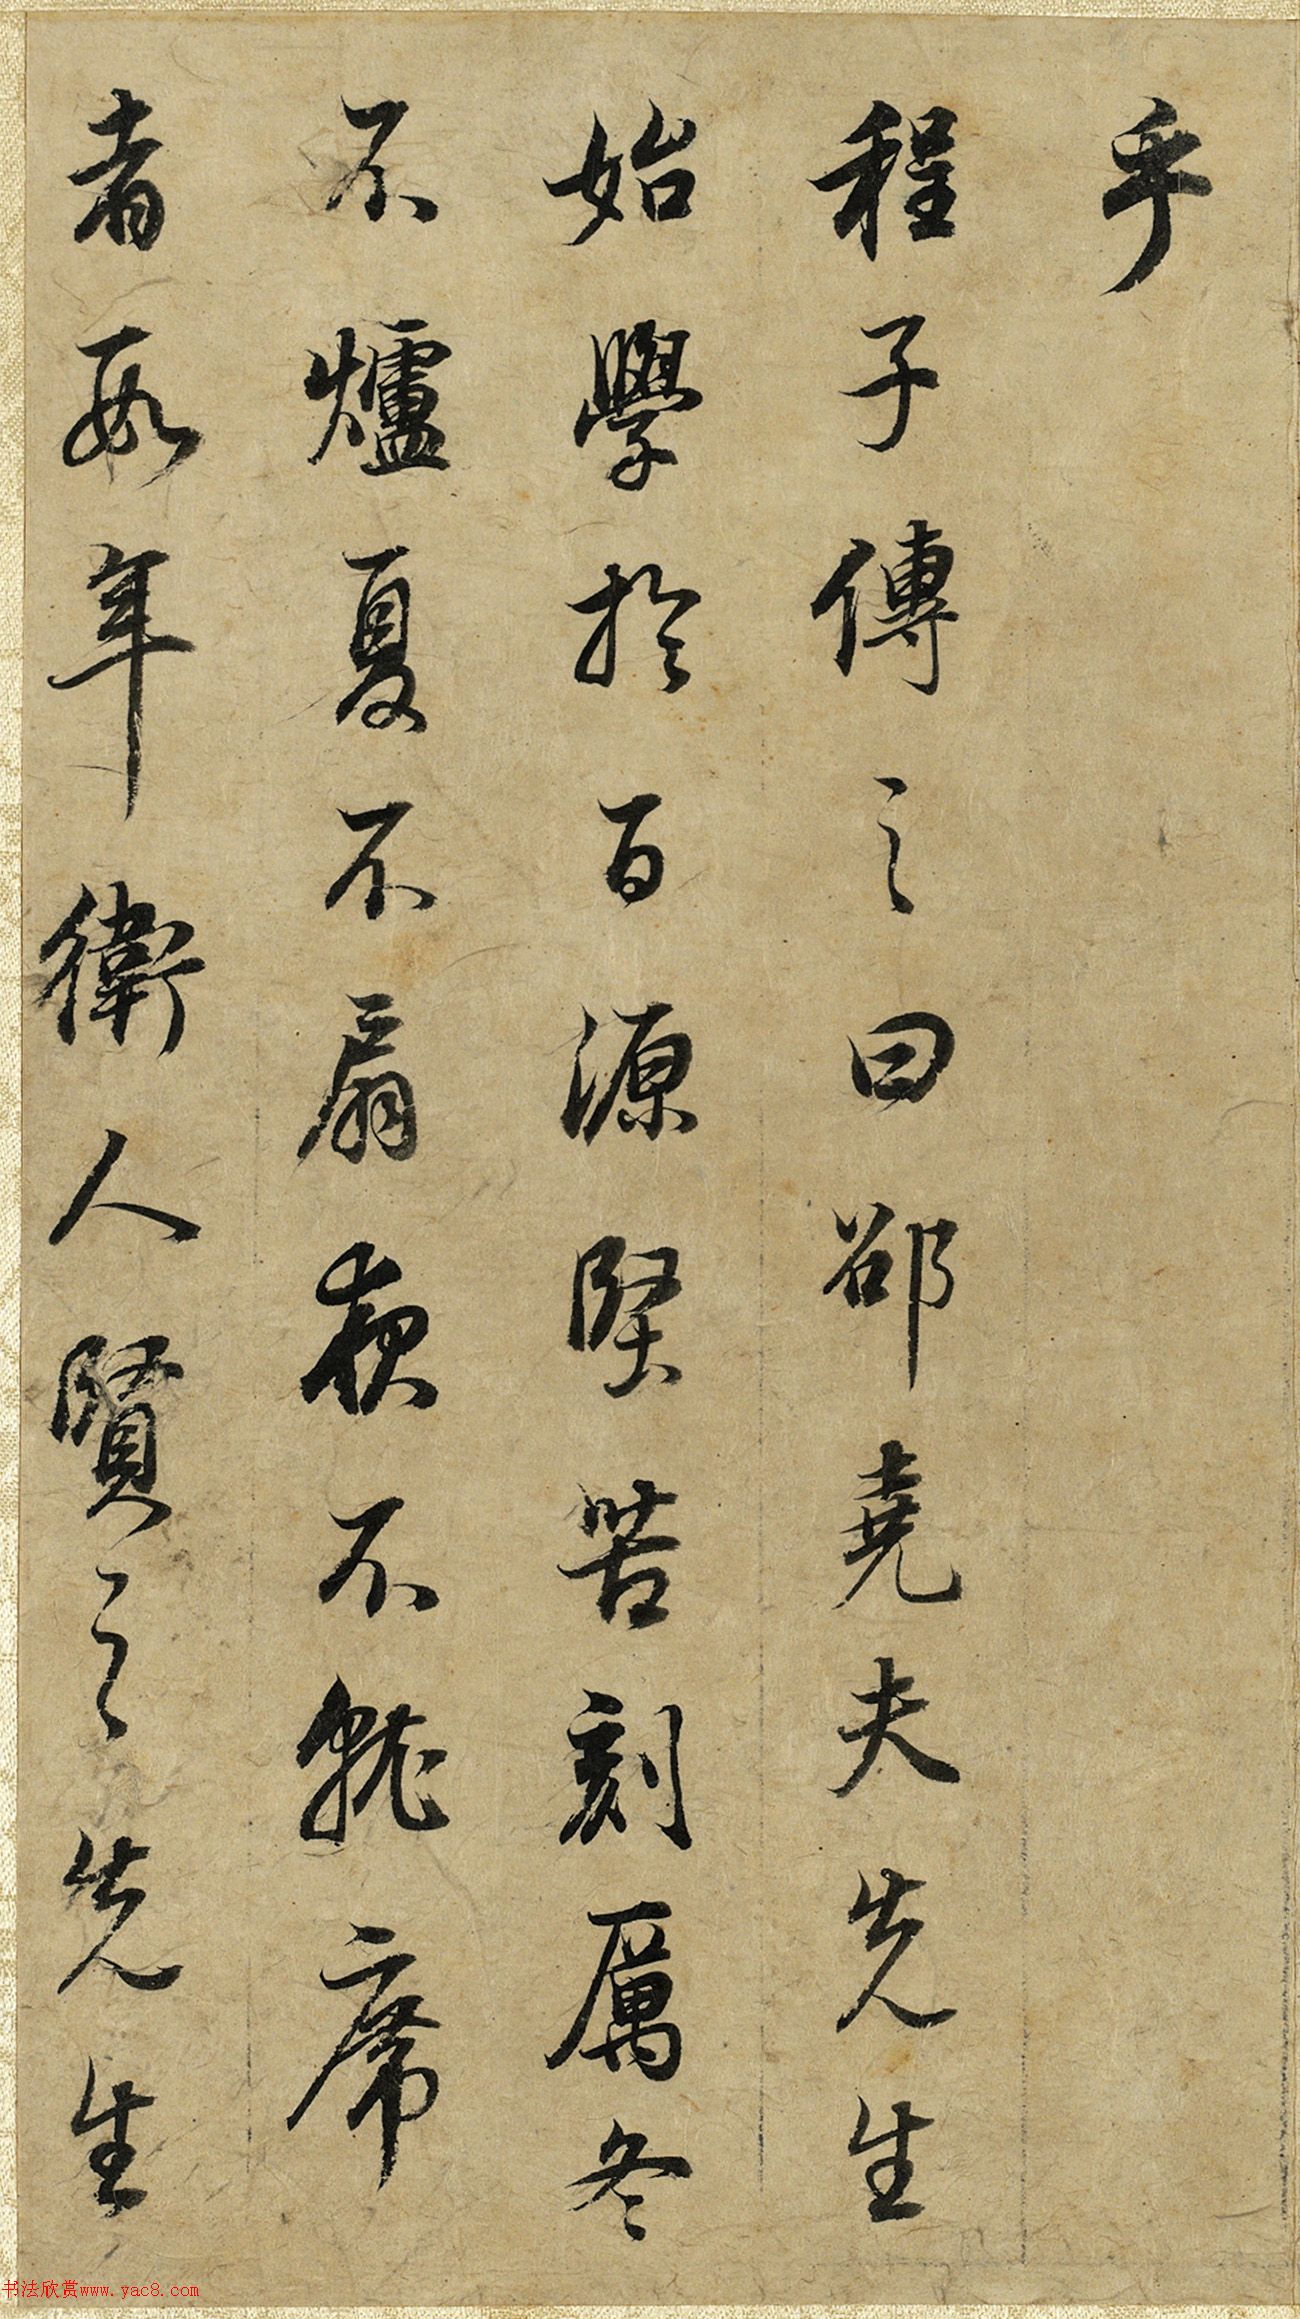 乎
程子傳之曰邵堯夫先生
始學於百源堅苦刻厲冬
不爐夏不扇夜不就席
者數年衛人賢之先生
书法欣赏www.yac8.com